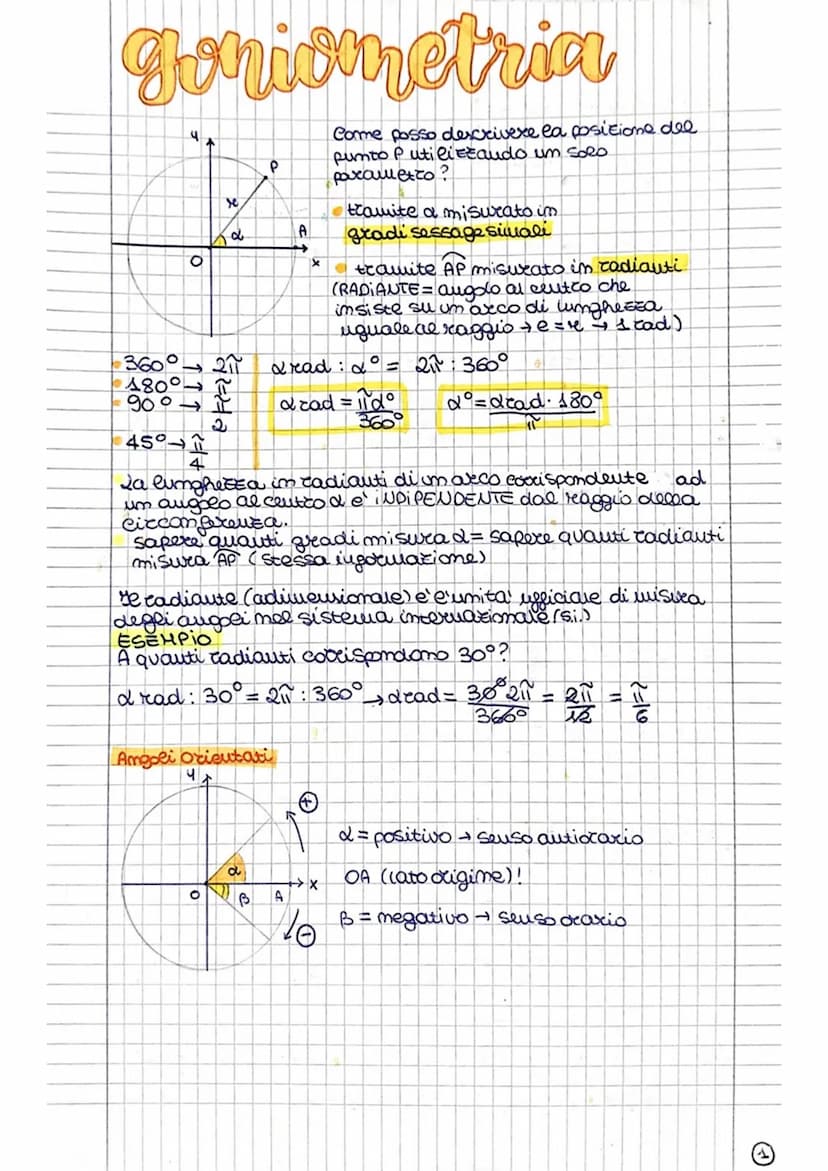 goniometria
Come posso descrivere la posizione del
punto P utilizzando un solo
parametro?
y
P
r
α
A
O
x
• tramite α misurato in
gradi sessagesimali
• tramite AP misurato in radianti
(RADIANTE = angolo al centro che
insiste su un arco di lunghezza
uguale al raggio → l = r → 1 rad)
• 360° → 2π
• 180° → π
• 90° → π/2
• 45° → π/4
α rad : α° = 2π : 360°
α rad = πα°/360°
α° = α rad · 180°/π
La lunghezza in radianti di un arco corrispondente ad
un angolo al centro α e' INDIPENDENTE dal raggio della
circonferenza.
sapere quanti gradi misura α = sapere quanti radianti
misura AP (stessa informazione)
Il radiante (adimensionale) e' l'unita' ufficiale di misura
degli angoli nel sistema internazionale (s.i.)
ESEMPIO
A quanti radianti corrispondono 30°?
α rad : 30° = 2π : 360° → α rad = 30° 2π/360° = 2π/12 = π/6
Angoli orientati
y
+
α
x
O
β
A
-
α = positivo → senso antiorario
OA (lato origine)!
β = negativo → senso orario
1